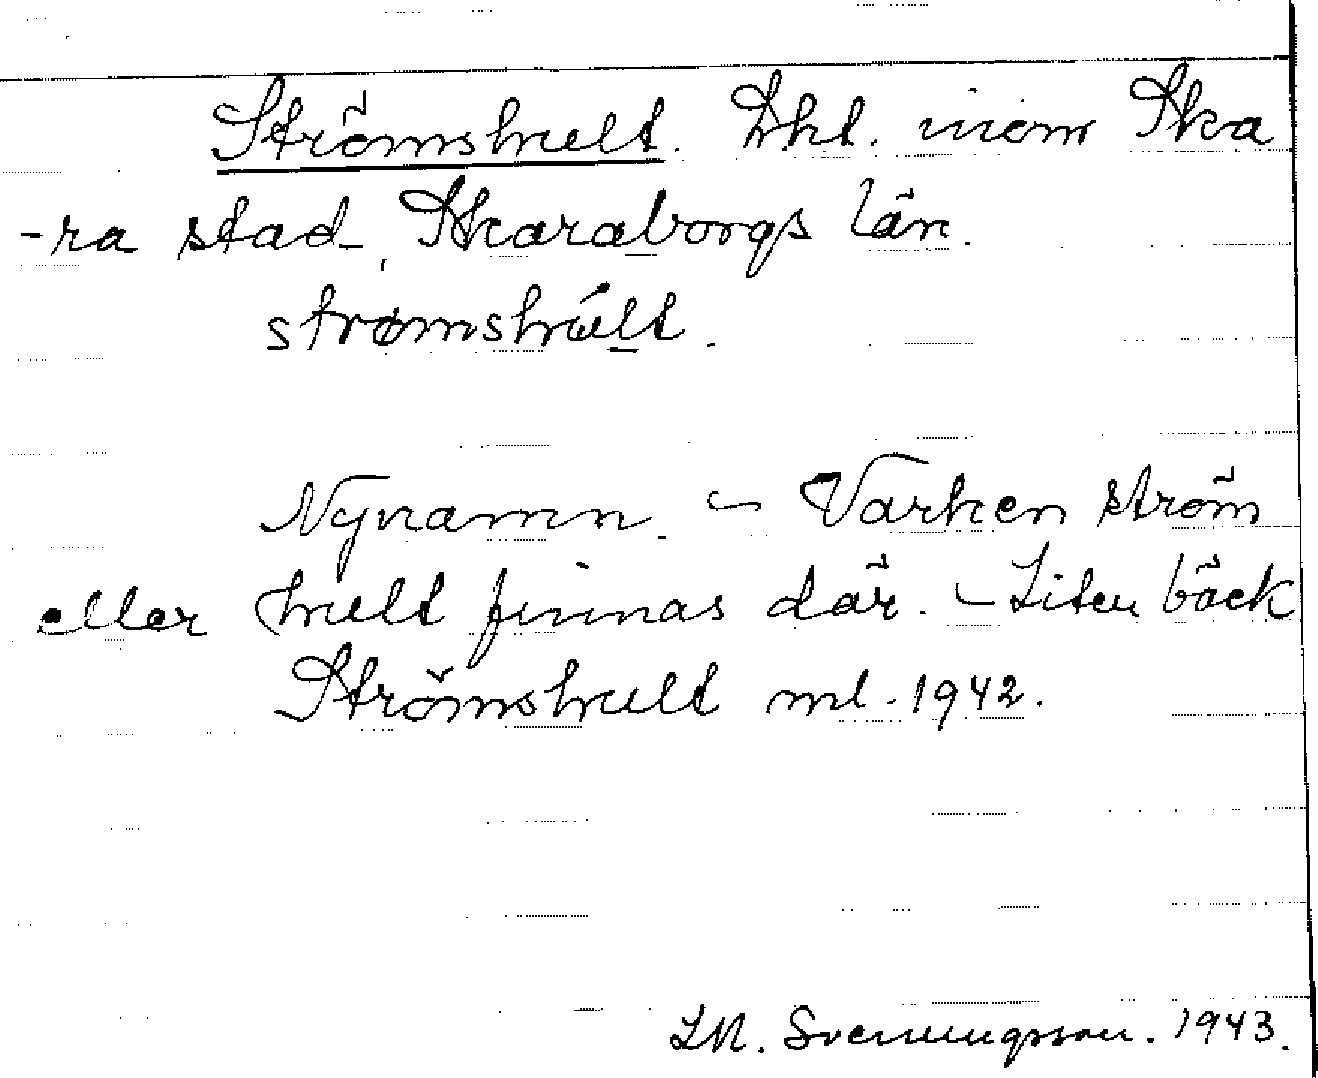 Strömshult. Lht. inom Ska
-ra stad, Skaraborgs län.
strømshúlt.
Nynamn. – Varken ström
eller hult finnas där. – Liten bäck
Strömshult ml. 1942.
LM. Svenungsson. 1943.